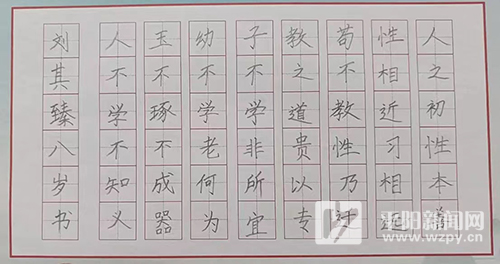 人之初性本善
性相近习相远
苟不教性乃迁
教之道贵以专
子不学非所宜
幼不学老何为
玉不琢不成器
人不学不知义
刘其臻八岁书
平阳新闻网
www.wzpy.cn